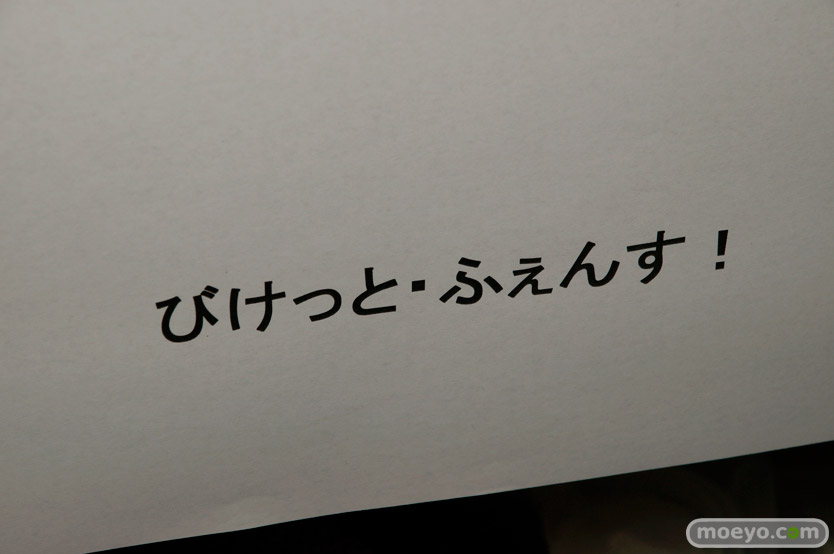 びけっと・ふぇんす！
moeyo.com